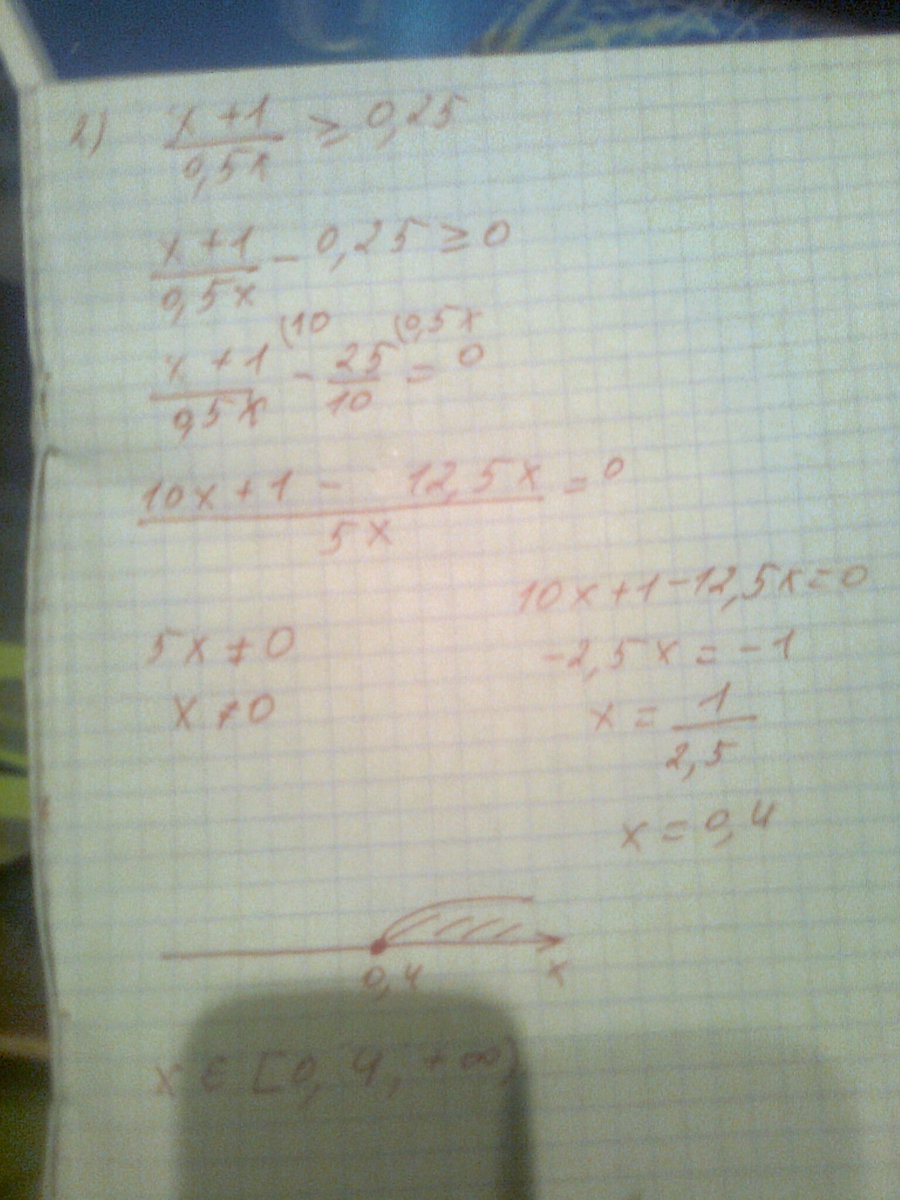 2) x + 1 / 0,5x ≥ 0,25
x + 1 / 0,5x - 0,25 ≥ 0
x + 1 / 0,5x (10 - 25 / 10 (0,5x = 0
10x + 1 - 12,5x / 5x = 0
10x + 1 - 12,5x = 0
5x ≠ 0
-2,5x = -1
x ≠ 0
x = 1 / 2,5
x = 0,4
0,4 x
x ∈ [0,4, +∞)